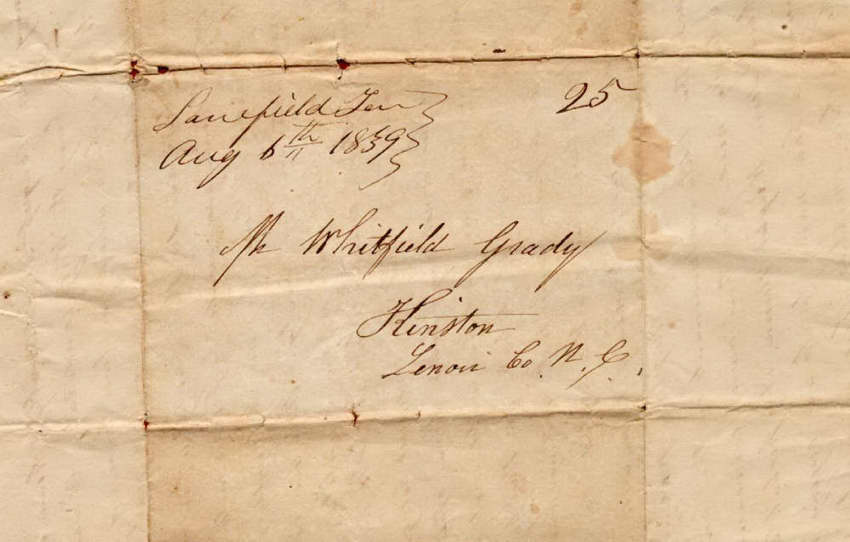 Lanefield Ten
25
Aug 6th 1839
Mr Whitfield Grady
Kinston
Lenoir Co. N. C.